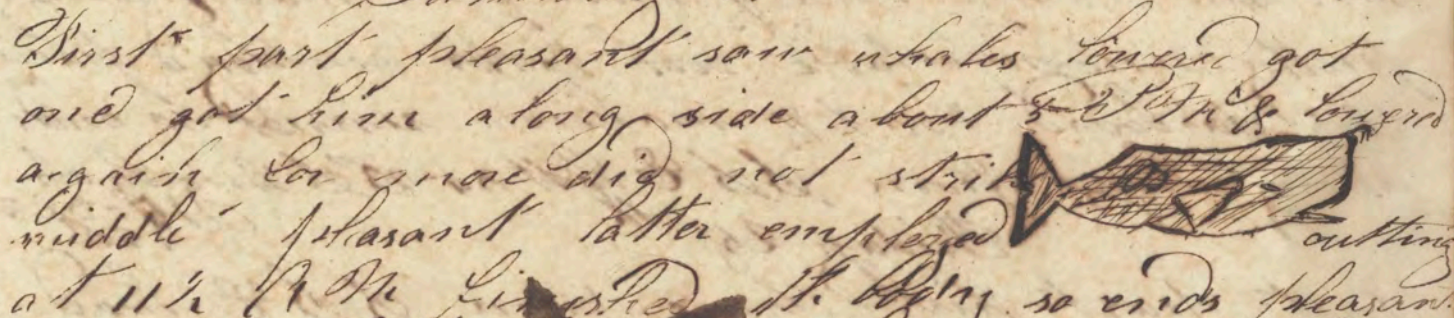 First part pleasant saw whales lowered got
one got him along side about 5 P M & lowered
again for more did not strike
middle pleasant latter employed cutting
at 11½ A M finished the body so ends pleasant